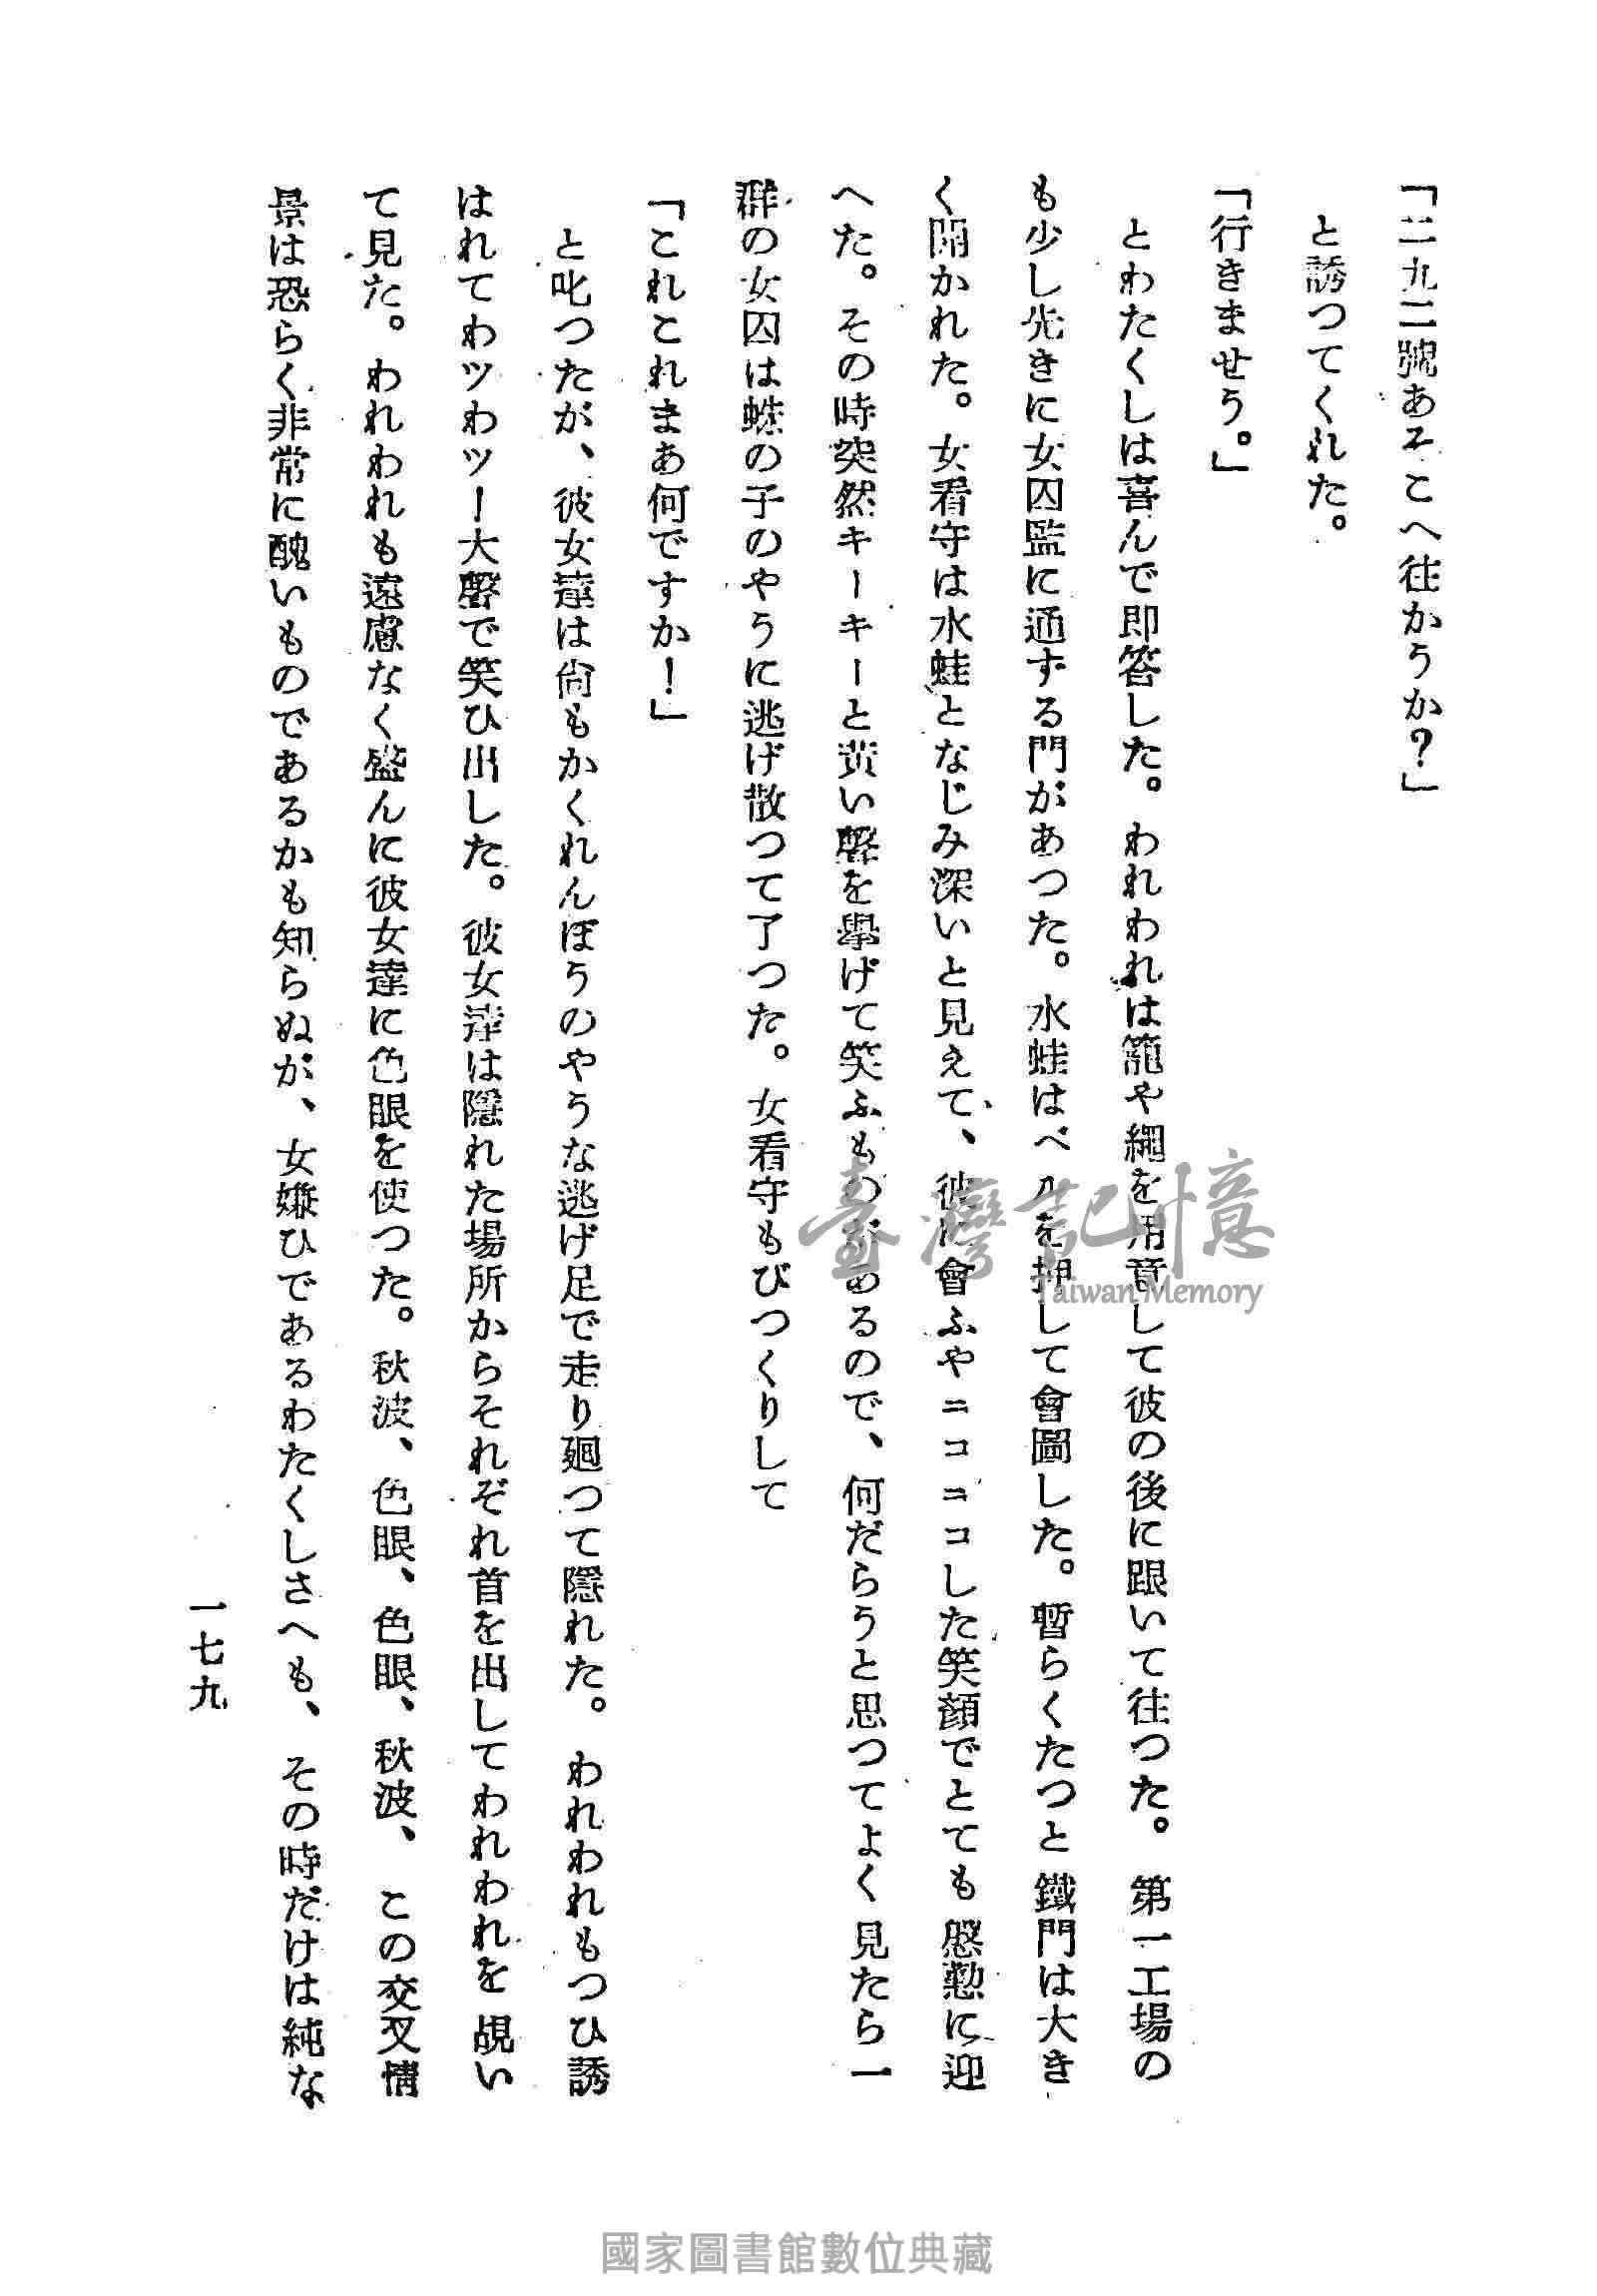 「二九二號あそこへ往かうか?」
と誘つてくれた。
「行きませう。」
とわたくしは喜んで即答した。われわれは籠や繩を用意して彼の後に跟いて往つた。第一工場の
も少し先きに女囚監に通ずる門があつた。水蛙はベルを押して會圖した。暫らくたつと鐵門は大き
く開かれた。女看守は水蛙となじみ深いと見えて、彼に會ふやニコニコした笑顏でとても慇懃に迎
へた。その時突然キーキーと黄い聲を擧げて笑ふものがあるので、何だらうと思つてよく見たら一
群の女囚は蜘の子のやうに逃げ散つて了つた。女看守もびつくりして
「これこれまあ何ですか!」
と叱つたが、彼女達は尙もかくれんぼうのやうな逃げ足で走り廻つて隱れた。われわれもつひ誘
はれてわツわツー大聲で笑ひ出した。彼女達は隱れた場所からそれぞれ首を出してわれわれを覘い
て見た。われわれも遠慮なく盛んに彼女達に色眼を使つた。秋波、色眼、色眼、秋波、この交叉情
景は恐らく非常に醜いものであるかも知らぬが、女嫌ひであるわたくしさへも、その時だけは純な
一七九
臺灣記憶
Taiwan Memory
國家圖書館數位典藏